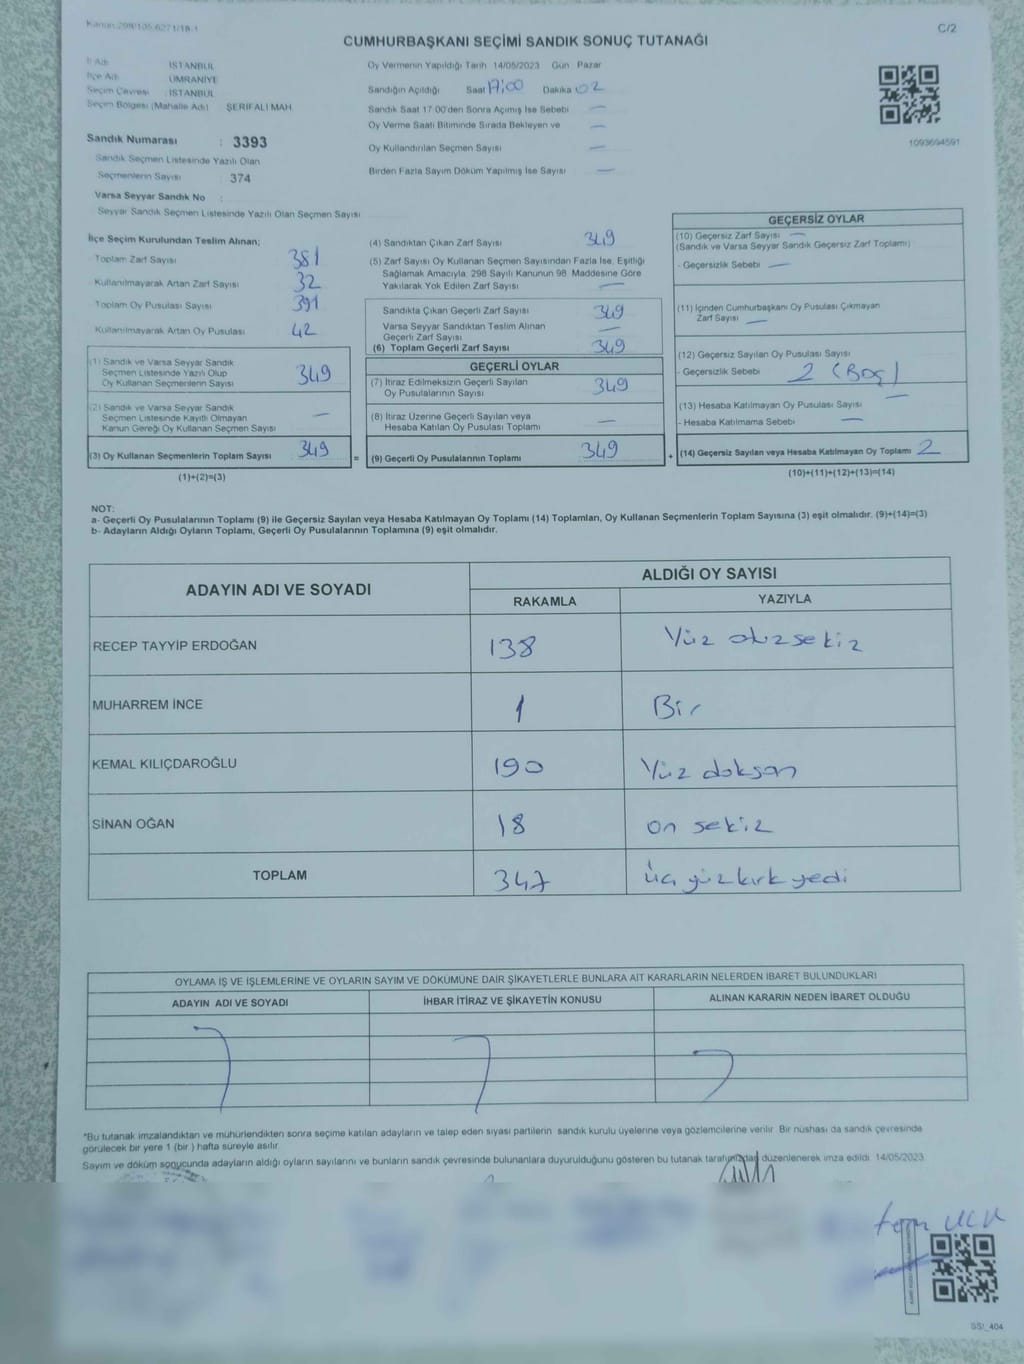 Kanun:298/105,6271/18-1
C/2
CUMHURBAŞKANI SEÇİMİ SANDIK SONUÇ TUTANAĞI
İl Adı İSTANBUL
İlçe Adı ÜMRANİYE
Seçim Çevresi : İSTANBUL
Seçim Bölgesi (Mahalle Adı) ŞERİFALİ MAH
Sandık Numarası : 3393
Sandık Seçmen Listesinde Yazılı Olan
Seçmenlerin Sayısı : 374
Varsa Seyyar Sandık No :
Seyyar Sandık Seçmen Listesinde Yazılı Olan Seçmen Sayısı
Oy Vermenin Yapıldığı Tarih 14/05/2023 Gün Pazar
Sandığın Açıldığı Saat 17:00 Dakika 02
Sandık Saat 17.00'den Sonra Açımış İse Sebebi —
Oy Verme Saati Bitiminde Sırada Bekleyen ve —
Oy Kullandırılan Seçmen Sayısı —
Birden Fazla Sayım Döküm Yapılmış İse Sayısı —
1093694591
İlçe Seçim Kurulundan Teslim Alınan;
Toplam Zarf Sayısı 381
Kullanılmayarak Artan Zarf Sayısı 32
Toplam Oy Pusulası Sayısı 391
Kullanılmayarak Artan Oy Pusulası 42
(1) Sandık ve Varsa Seyyar Sandık
Seçmen Listesinde Yazılı Olup
Oy Kullanan Seçmenlerin Sayısı 349
(2) Sandık ve Varsa Seyyar Sandık
Seçmen Listesinde Kayıtlı Olmayan
Kanun Gereği Oy Kullanan Seçmen Sayısı —
(3) Oy Kullanan Seçmenlerin Toplam Sayısı 349 =
(1)+(2)=(3)
(4) Sandıktan Çıkan Zarf Sayısı 349
(5) Zarf Sayısı Oy Kullanan Seçmen Sayısından Fazla İse, Eşitliği
Sağlamak Amacıyla, 298 Sayılı Kanunun 98. Maddesine Göre
Yakılarak Yok Edilen Zarf Sayısı —
Sandıkta Çıkan Geçerli Zarf Sayısı 349
Varsa Seyyar Sandıktan Teslim Alınan
Geçerli Zarf Sayısı —
(6) Toplam Geçerli Zarf Sayısı 349
GEÇERLİ OYLAR
(7) İtiraz Edilmeksizin Geçerli Sayılan
Oy Pusulalarının Sayısı 349
(8) İtiraz Üzerine Geçerli Sayılan veya
Hesaba Katılan Oy Pusulası Toplamı —
(9) Geçerli Oy Pusulalarının Toplamı 349 +
GEÇERSİZ OYLAR
(10) Geçersiz Zarf Sayısı —
(Sandık ve Varsa Seyyar Sandık Geçersiz Zarf Toplamı)
- Geçersizlik Sebebi —
(11) İçinden Cumhurbaşkanı Oy Pusulası Çıkmayan
Zarf Sayısı —
(12) Geçersiz Sayılan Oy Pusulası Sayısı
- Geçersizlik Sebebi 2 (Boş)
(13) Hesaba Katılmayan Oy Pusulası Sayısı —
- Hesaba Katılmama Sebebi —
(14) Geçersiz Sayılan veya Hesaba Katılmayan Oy Toplamı 2
(10)+(11)+(12)+(13)=(14)
NOT:
a- Geçerli Oy Pusulalarının Toplamı (9) ile Geçersiz Sayılan veya Hesaba Katılmayan Oy Toplamı (14) Toplamları, Oy Kullanan Seçmenlerin Toplam Sayısına (3) eşit olmalıdır. (9)+(14)=(3)
b- Adayların Aldığı Oyların Toplamı, Geçerli Oy Pusulalarının Toplamına (9) eşit olmalıdır.
ADAYIN ADI VE SOYADI
ALDIĞI OY SAYISI
RAKAMLA YAZIYLA
RECEP TAYYİP ERDOĞAN 138 Yüz otuz sekiz
MUHARREM İNCE 1 Bir
KEMAL KILIÇDAROĞLU 190 Yüz doksan
SİNAN OĞAN 18 on sekiz
TOPLAM 347 üç yüz kırk yedi
OYLAMA İŞ VE İŞLEMLERİNE VE OYLARIN SAYIM VE DÖKÜMÜNE DAİR ŞİKAYETLERLE BUNLARA AİT KARARLARIN NELERDEN İBARET BULUNDUKLARI
ADAYIN ADI VE SOYADI İHBAR İTİRAZ VE ŞİKAYETİN KONUSU ALINAN KARARIN NEDEN İBARET OLDUĞU
*Bu tutanak imzalandıktan ve mühürlendikten sonra seçime katılan adayların ve talep eden siyasi partilerin sandık kurulu üyelerine veya gözlemcilerine verilir. Bir nüshası da sandık çevresinde
görülecek bir yere 1 (bir ) hafta süreyle asılır.
Sayım ve döküm sonucunda adayların aldığı oyların sayılarını ve bunların sandık çevresinde bulunanlara duyurulduğunu gösteren bu tutanak tarafımızdan düzenlenerek imza edildi. 14/05/2023
SS!_404